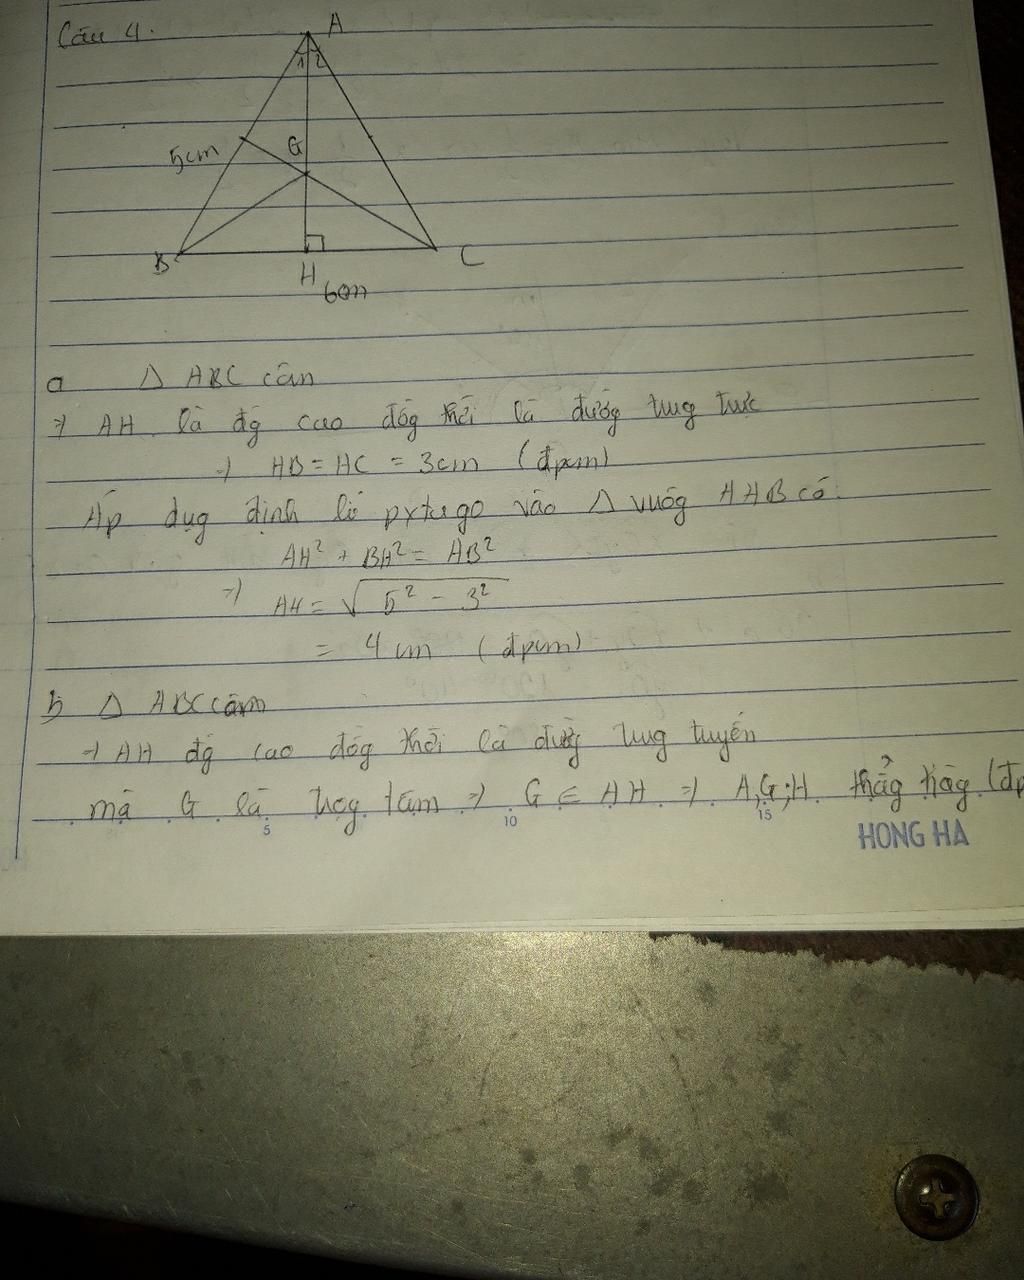 Câu 4.
A
1 2
5cm
G
B
H
C
6cm
a Δ ABC cân
=> AH là đg cao đồg thời là đườg tug trực
=> HB = HC = 3cm (đpcm)
Áp dụg định lí pytago vào Δ vuôg AHB có:
AH² + BH² = AB²
=> AH = √5² - 3²
= 4 cm (đpcm)
b, Δ ABC cân
=> AH đg cao đồg thời là đườg tug tuyến
mà G là trọg tâm => G ∈ AH => A,G;H thẳg hàg (đp
5 10 15
HONG HA